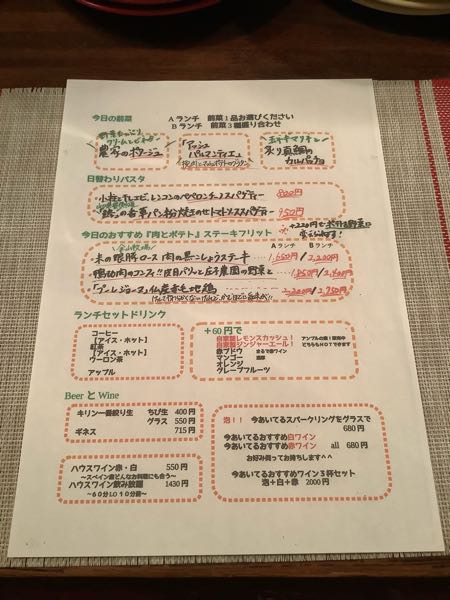 今日の前菜
Aランチ 前菜1品お選びください
Bランチ 前菜3種盛り合わせ
農夫のポタージュ
「アッシュ
パルマンティエ」
炙り真鯛の
カルパッチョ
日替わりパスタ
レンコンのペペロンチーノスパゲティー 800円
トマトソーススパゲティー 950円
今日のおすすめ『肉とポテト』ステーキフリット
Aランチ Bランチ
牛の肩ロース肉の黒こしょうステーキ 1,650円/2,200円
鴨胸肉のコンフィ!!皮目パリッと
仏産赤毛地鶏 2,200円/2,750円
ランチセットドリンク
コーヒー
【アイス・ホット】
紅茶
【アイス・ホット】
ウーロン茶
アップル
+60円で
自家製レモンスカッシュ!
自家製ジンジャーエール!
アンプルの酢!置酒中
どちらもHOTできます
赤ブドウ まるで赤ワイン
マンゴー 濃厚
オレンジ
グレープフルーツ
Beer と Wine
キリン一番絞り生 ちび生 400円
グラス 550円
ギネス 715円
泡!! 今あいてるスパークリングをグラスで
680円
今あいてるおすすめ白ワイン
今あいてるおすすめ赤ワイン all 680円
お好み伺ってお持ちします^^
今あいてるおすすめワイン3杯セット
泡+白+赤 2000円
ハウスワイン赤・白 550円
~スペイン産どんなお料理にも合う~
ハウスワイン飲み放題 1430円
~60分LO10分前~